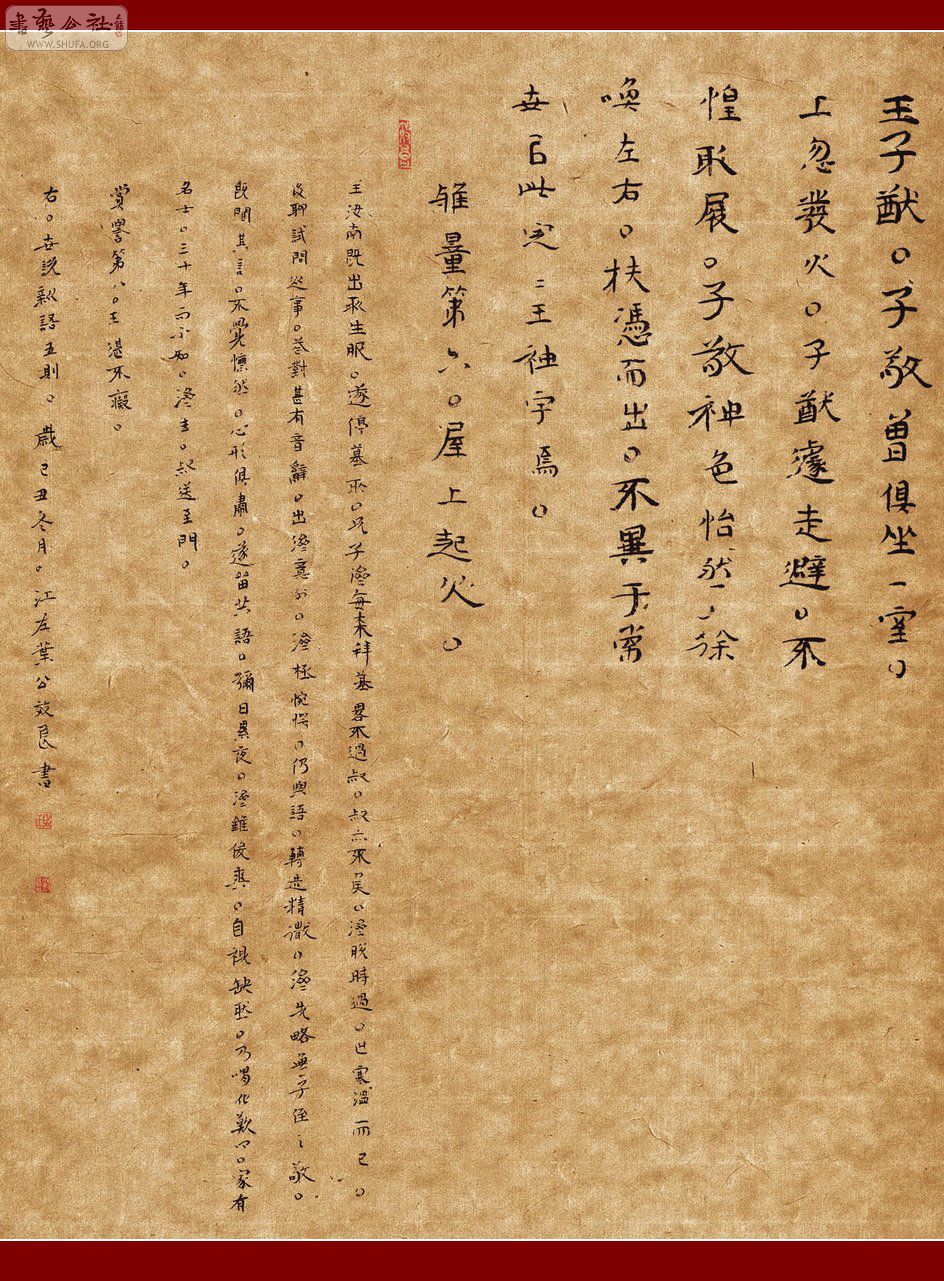 書藝公社
WWW.SHUFA.ORG
王子猷。子敬曾俱坐一室。
上忽發火。子猷遽走避。不
惶取屐。子敬神色怡然。徐
喚左右。扶憑而出。不異于常
世以此定二王神宇焉。
雅量第六。屋上起火。
王汝南既出所生服。遂停墓所。兄子濟每來拜墓畧不過叔。叔亦不候。濟脫時過。止寒溫而已。
後聊試問近事。答對甚有音辭。出濟意外。濟極惋愕。仍與語。轉造精微。濟先略無子侄之敬。
既聞其言。不覺懍然。心形俱肅。遂留共語。彌日累夜。濟雖俊爽。自視缺然。乃喟然歎曰。家有
名士。三十年而不知。濟去。叔送至門。
賞譽第八。王湛不癡。
右。世說新語五則。歲己丑冬月。江左葉公效良書